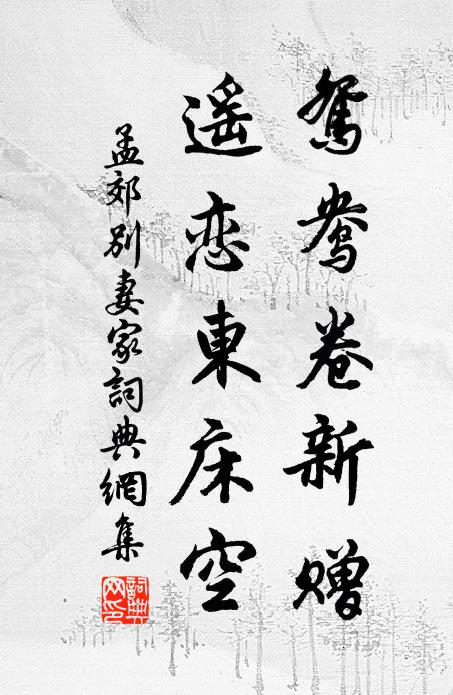 鸳鸯卷新赠
遥恋東床空
孟郊别妻家詞典網集
詞典
网印